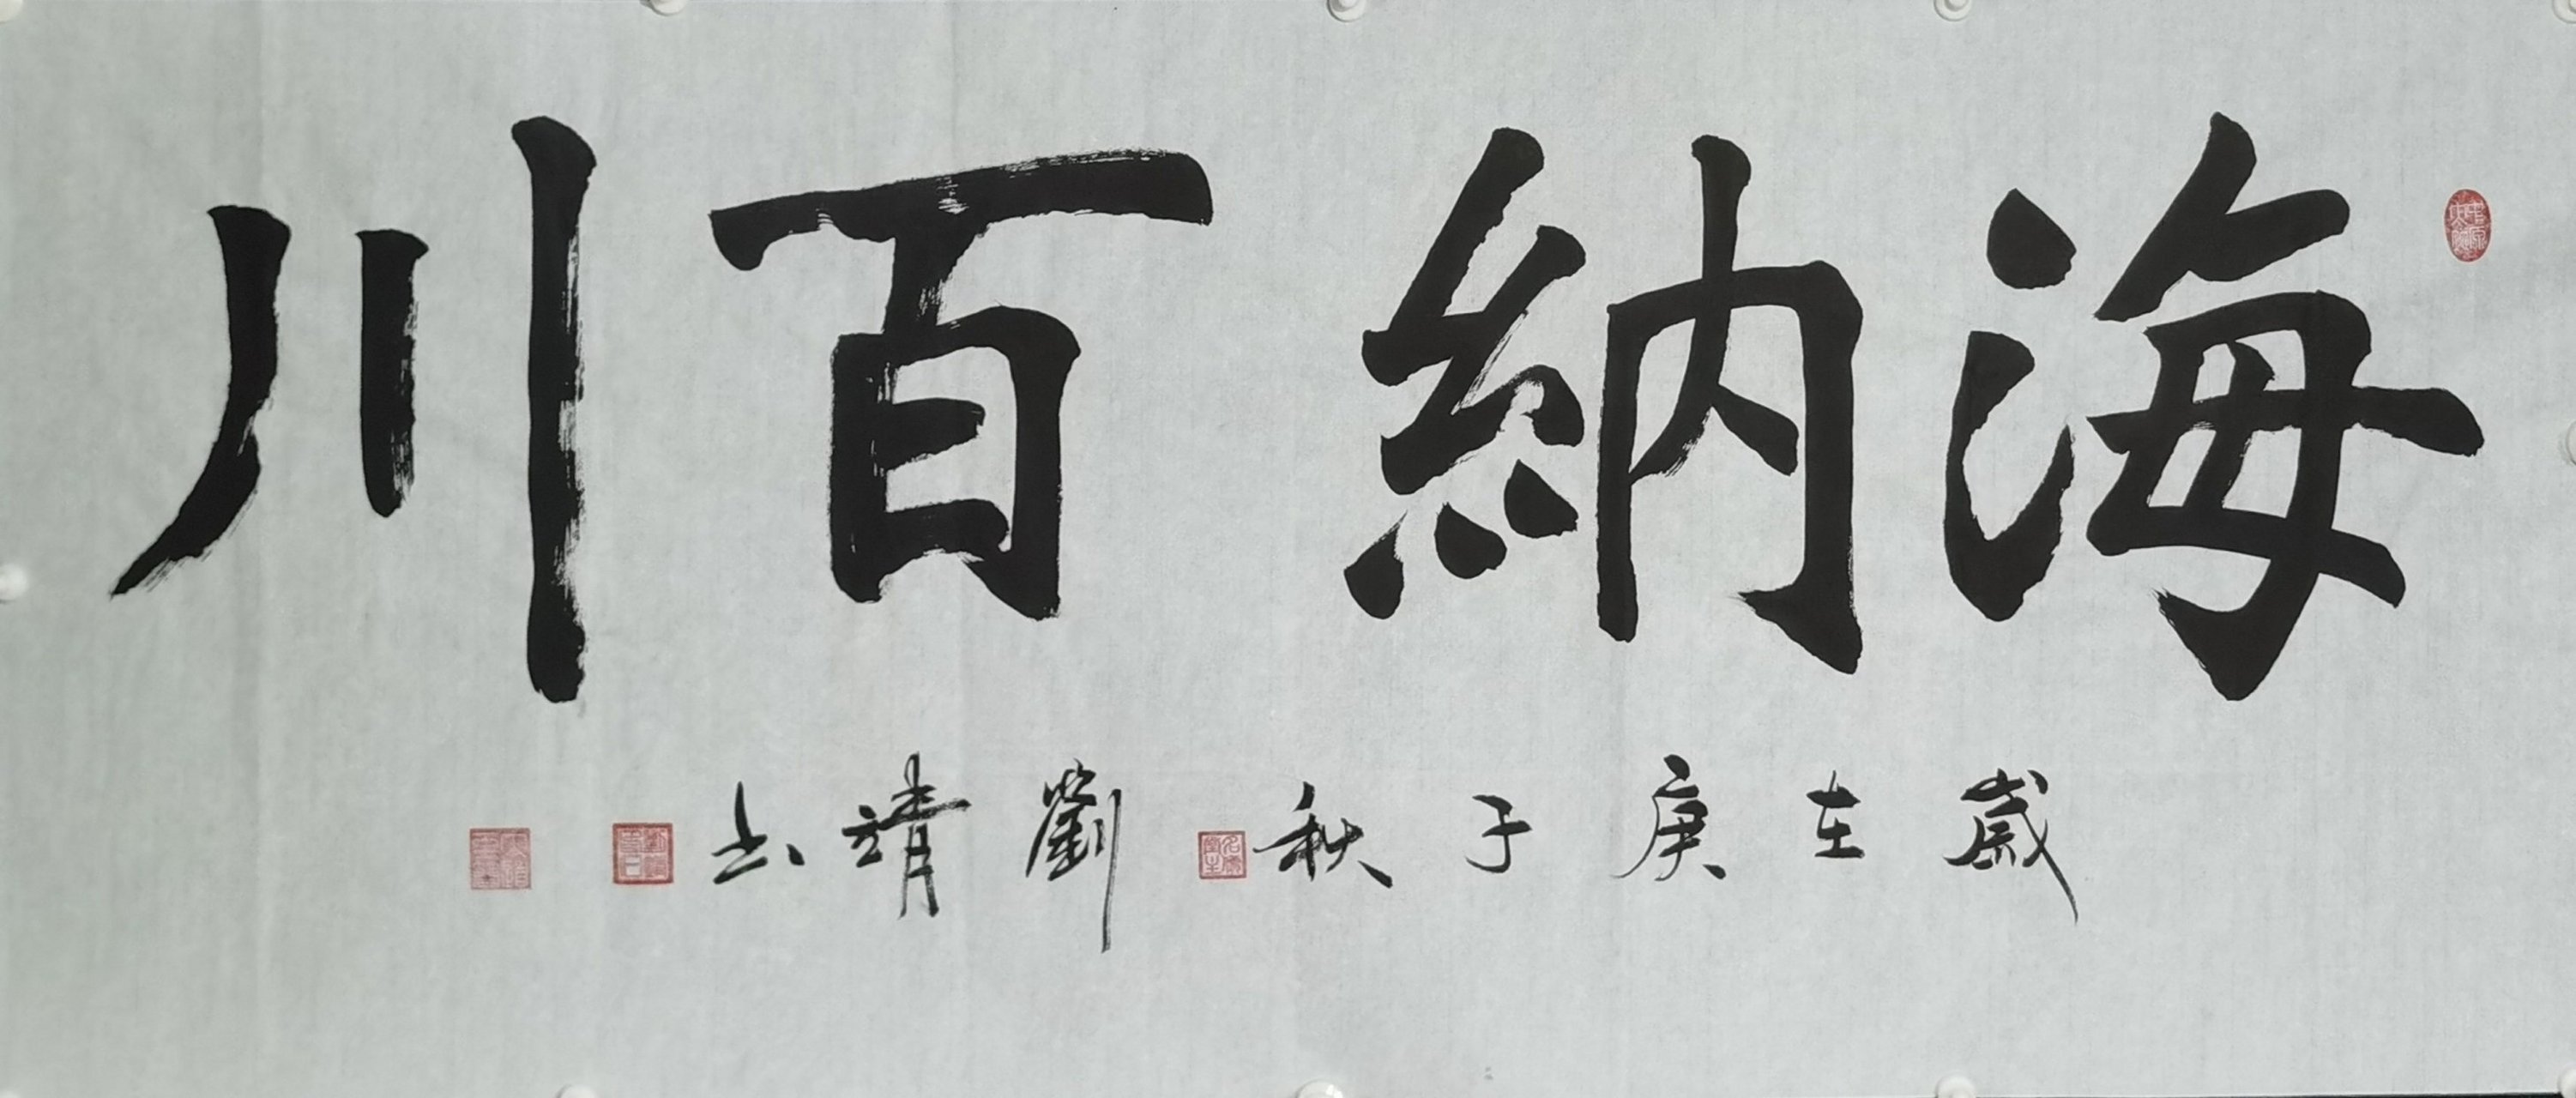 海納百川
歲在庚子秋劉靖书